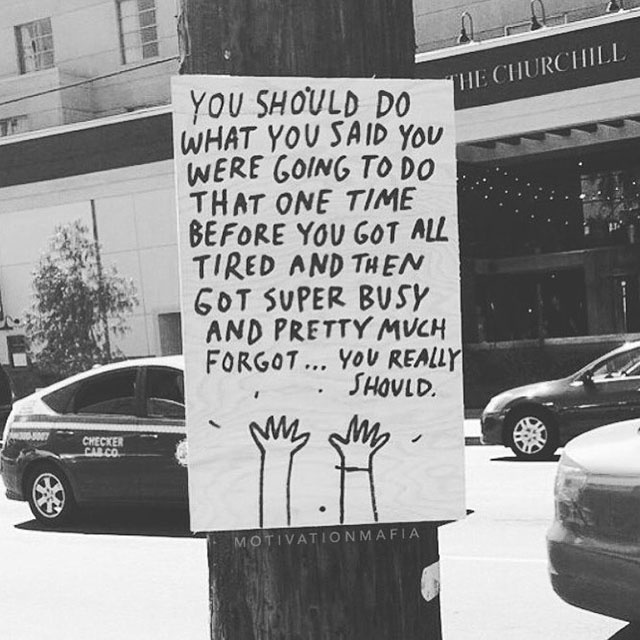 THE CHURCHILL
YOU SHOULD DO
WHAT YOU SAID YOU
WERE GOING TO DO
THAT ONE TIME
BEFORE YOU GOT ALL
TIRED AND THEN
GOT SUPER BUSY
AND PRETTY MUCH
FORGOT... YOU REALLY
SHOULD.
CHECKER
CAB CO.
MOTIVATIONMAFIA